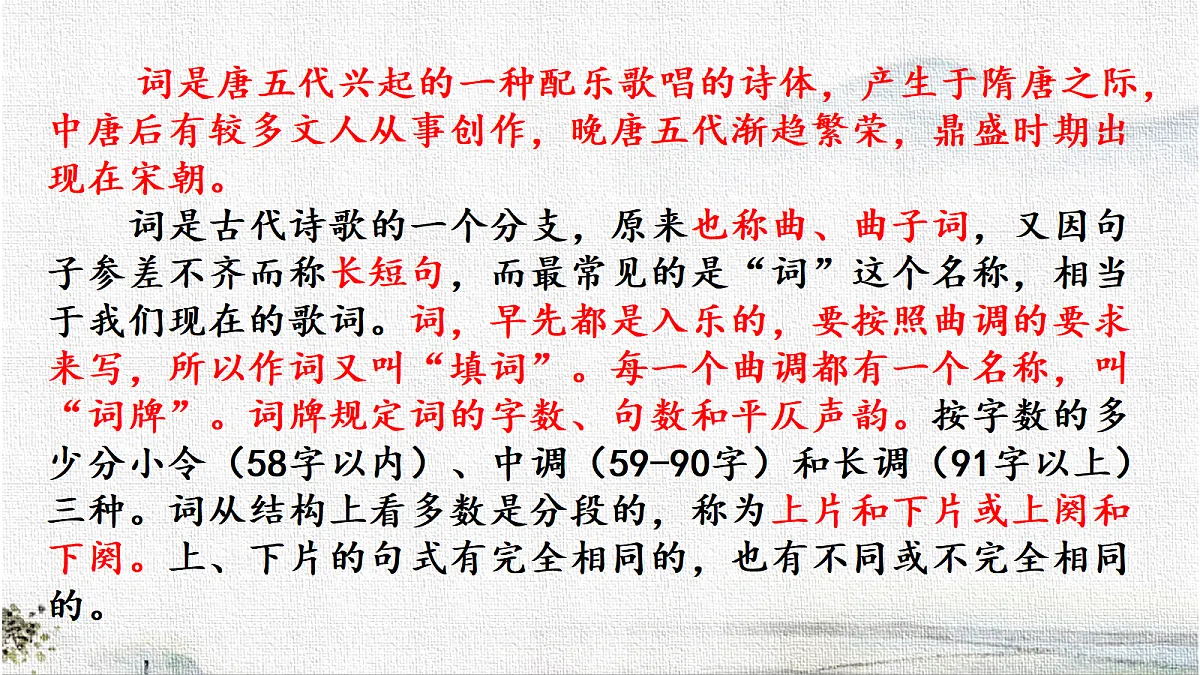 词是唐五代兴起的一种配乐歌唱的诗体，产生于隋唐之际，
中唐后有较多文人从事创作，晚唐五代渐趋繁荣，鼎盛时期出
现在宋朝。
词是古代诗歌的一个分支，原来也称曲、曲子词，又因句
子参差不齐而称长短句，而最常见的是“词”这个名称，相当
于我们现在的歌词。词，早先都是入乐的，要按照曲调的要求
来写，所以作词又叫“填词”。每一个曲调都有一个名称，叫
“词牌”。词牌规定词的字数、句数和平仄声韵。按字数的多
少分小令（58字以内）、中调（59-90字）和长调（91字以上）
三种。词从结构上看多数是分段的，称为上片和下片或上阕和
下阕。上、下片的句式有完全相同的，也有不同或不完全相同
的。